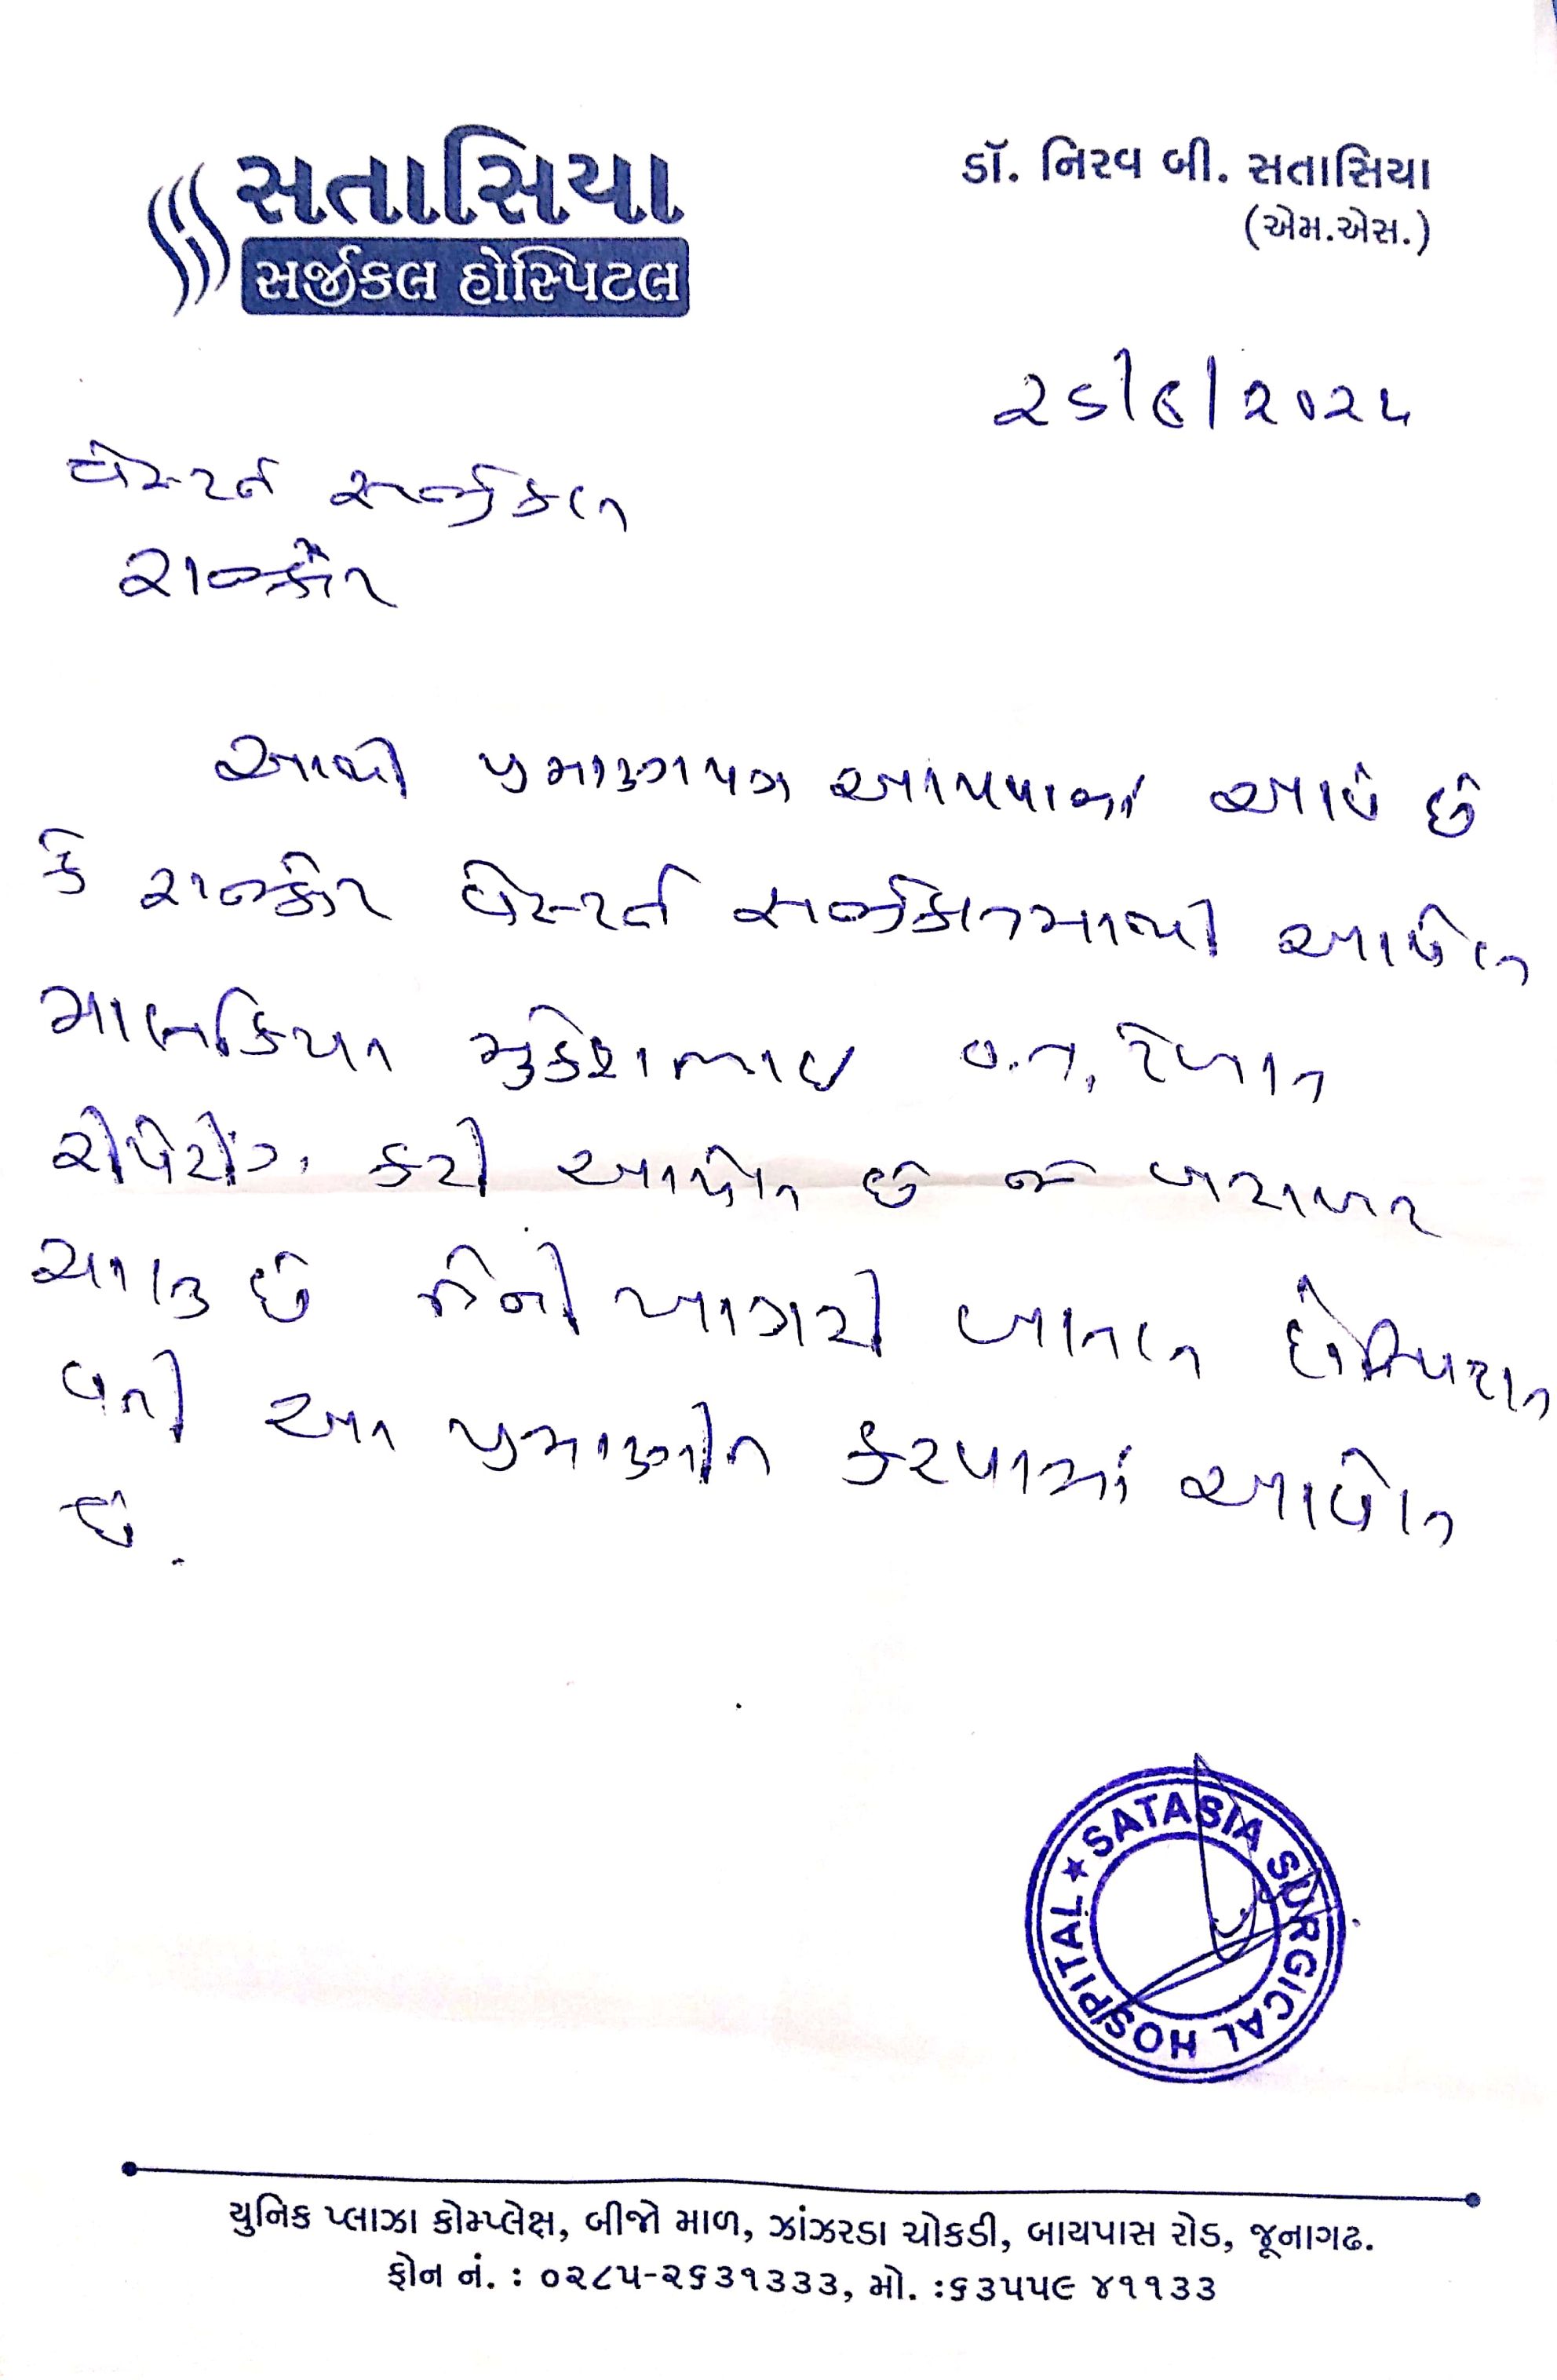 સતાસિયા
સર્જીકલ હોસ્પિટલ
ડૉ. નિરવ બી. સતાસિયા
(એમ.એસ.)
૨૬/૯/૨૦૨૫
વેસ્ટર્ન સર્જીકલ
રાજકોટ
આથી પ્રમાણપત્ર આપવામાં આવે છે
કે રાજકોટ વેસ્ટર્ન સર્જીકલમાથી આવેલ
માલકિયા મુકેશભાઇ ઓ.ટી. ટેબલ
રીપેરીંગ કરી આપેલ છે જે બરાબર
ચાલુ છે જેની ખાતરી હોસ્પિટલ
વતી આ પ્રમાણીત કરવામાં આવેલ
છે.
SATASIA SURGICAL HOSPITAL
યુનિક પ્લાઝા કોમ્પ્લેક્ષ, બીજો માળ, ઝાંઝરડા ચોકડી, બાયપાસ રોડ, જૂનાગઢ.
ફોન નં. : ૦૨૮૫-૨૬૩૧૩૩૩, મો. :૬૩૫૫૯ ૪૧૧૩૩